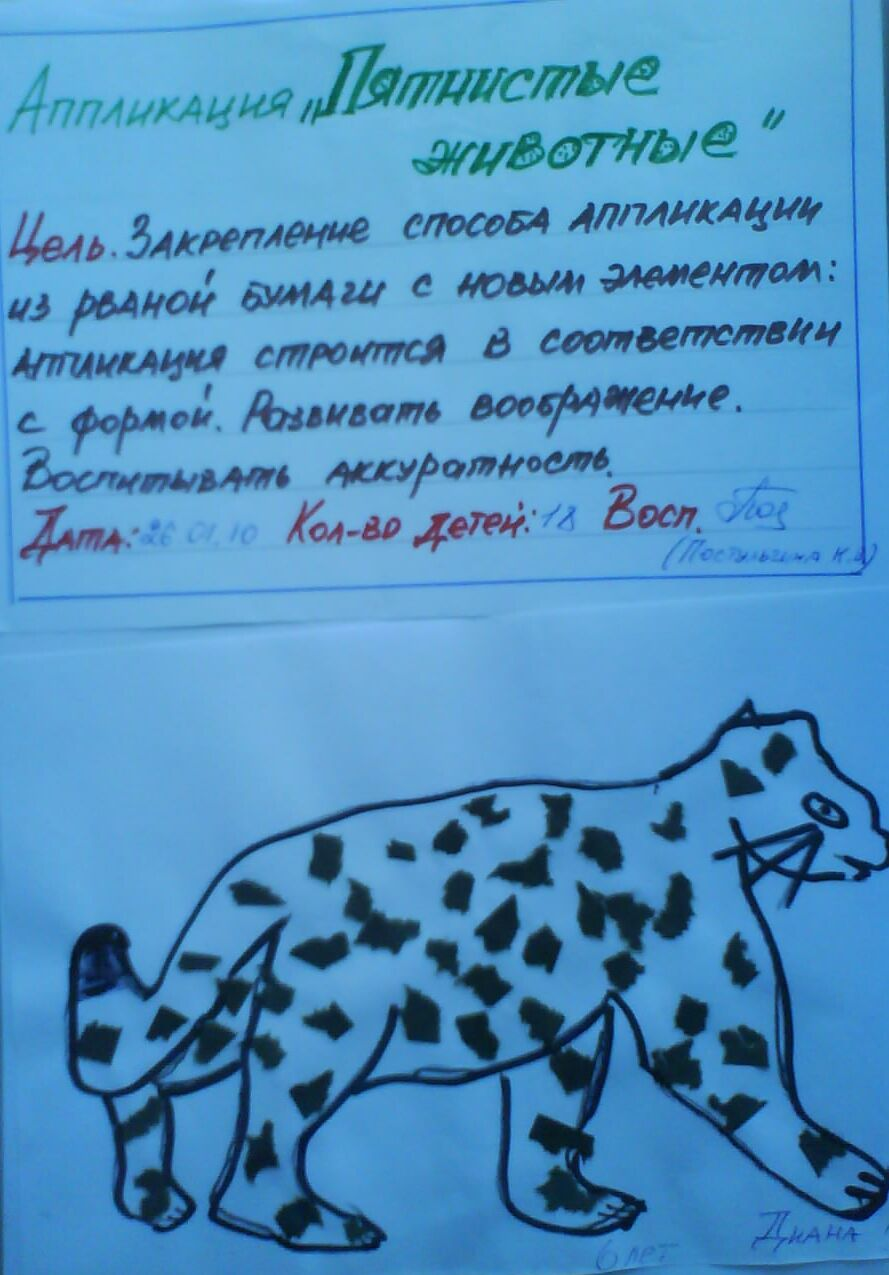 Аппликация „Пятнистые
животные"
Цель. Закрепление способа аппликации
из рваной бумаги с новым элементом:
аппликация строится в соответствии
с формой. Развивать воображение.
Воспитывать аккуратность.
Дата: 26.01.10 Кол-во детей: 18 Восп.
6 лет Диана